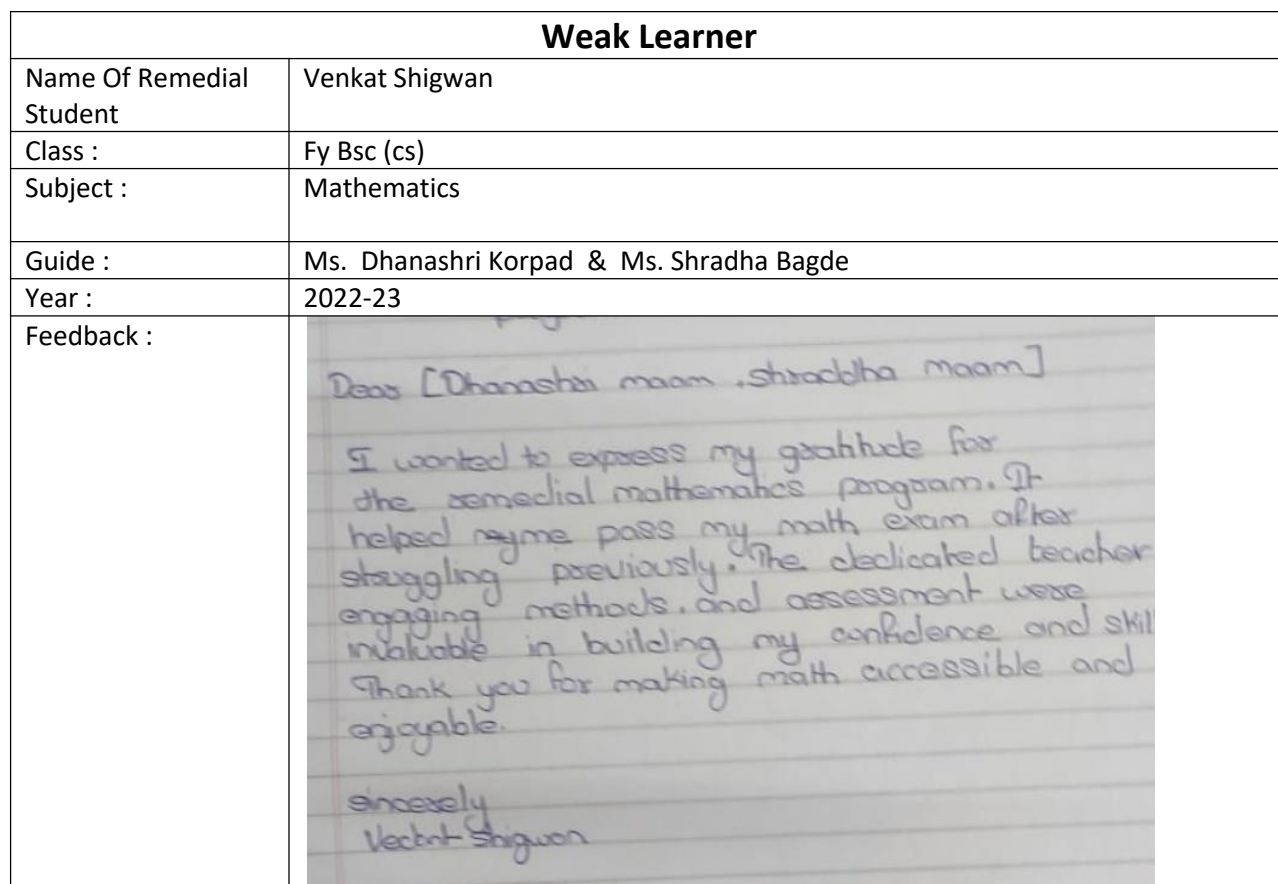 Weak Learner
Name Of Remedial
Student
Venkat Shigwan
Class :
Fy Bsc (cs)
Subject :
Mathematics
Guide :
Ms. Dhanashri Korpad & Ms. Shradha Bagde
Year :
2022-23
Feedback :
Dear [Dhanashri maam , shraddha maam]
I wanted to express my gratitude for
the remedial mathematics program. It
helped me pass my math exam after
struggling previously. The dedicated teacher
engaging methods, and assessment were
invaluable in building my confidence and skill
Thank you for making math accessible and
enjoyable.
sincerely
Shigwan